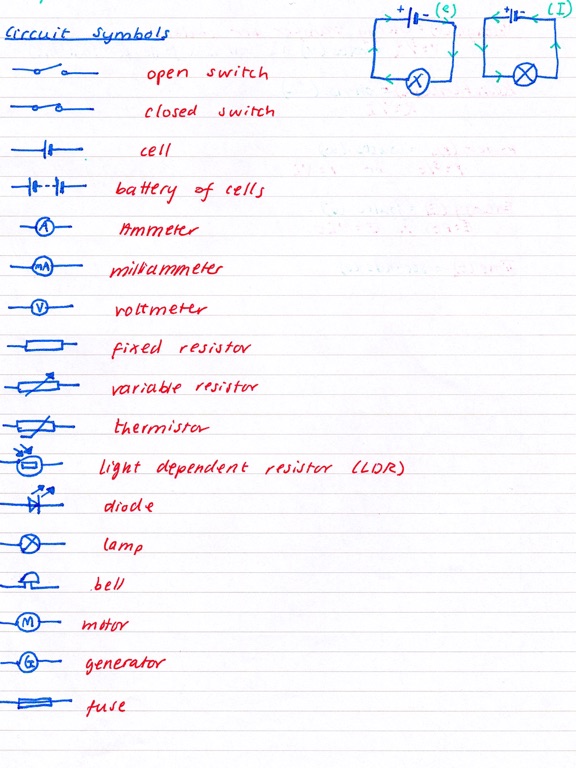 Circuit Symbols
+ - (e)
+ - (I)
open switch
closed switch
cell
battery of cells
A Ammeter
mA milliammeter
V voltmeter
fixed resistor
variable resistor
thermistor
light dependent resistor (LDR)
diode
lamp
bell
M motor
G generator
fuse